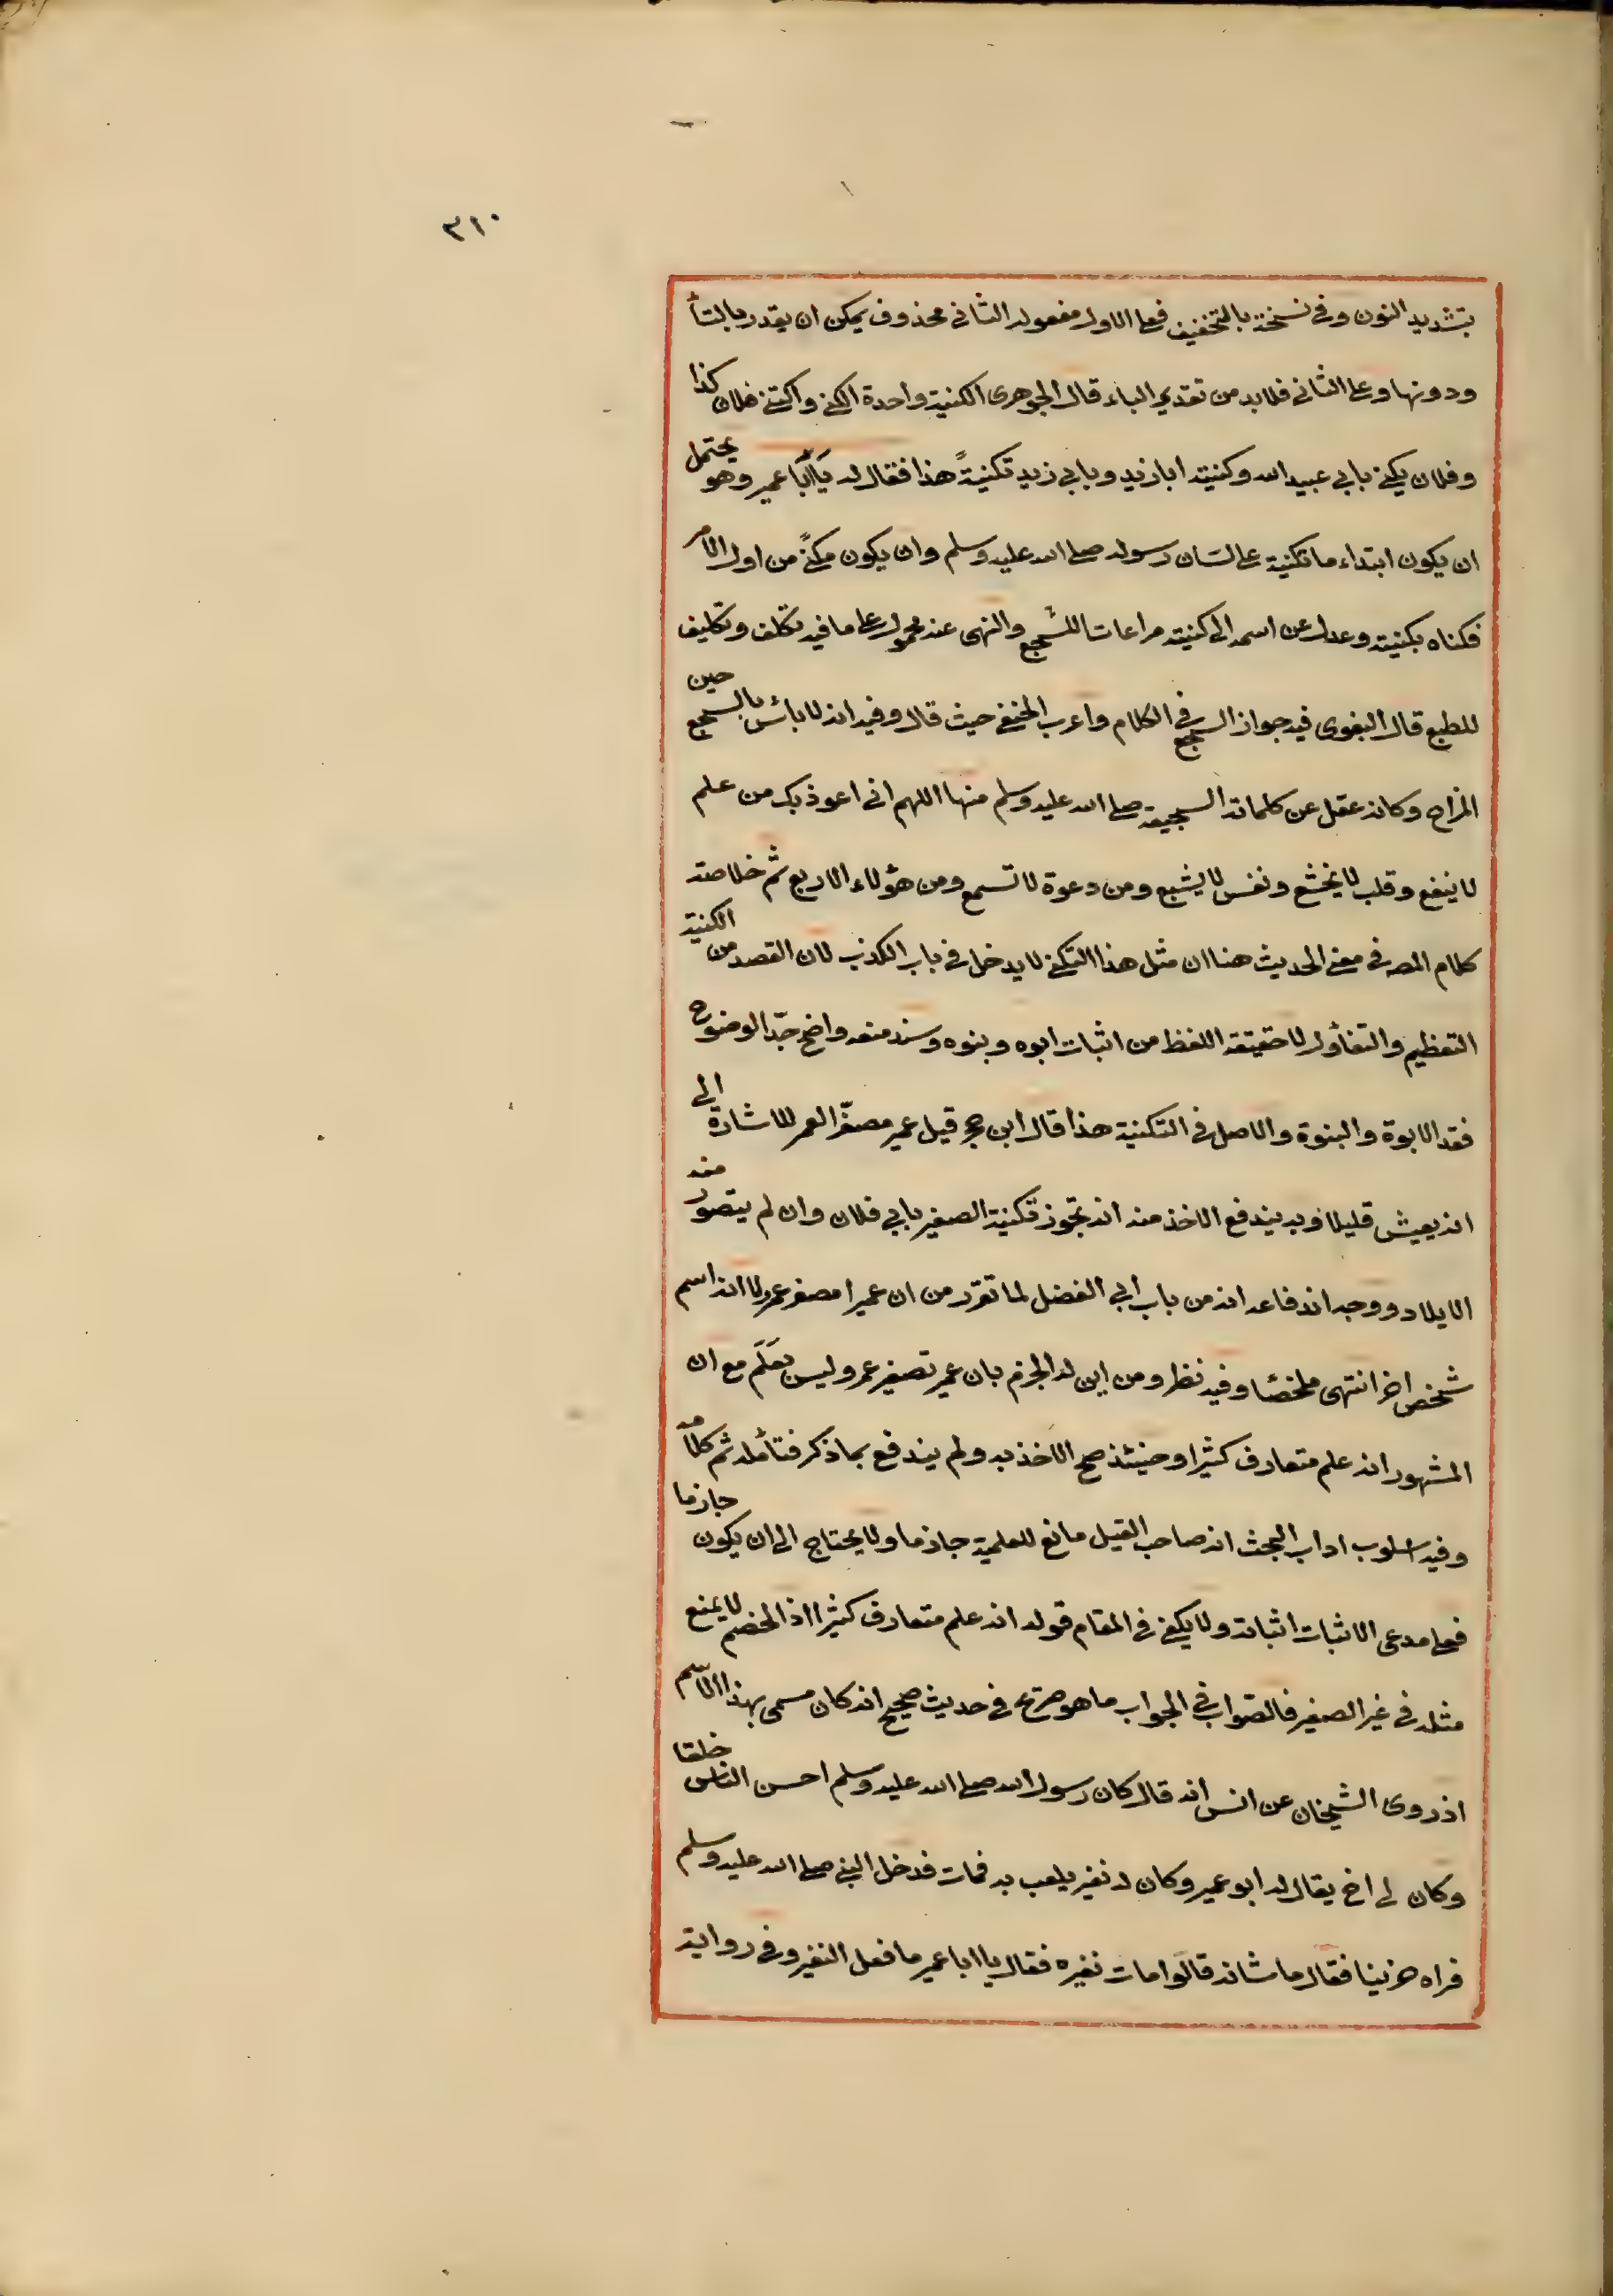 ٣١٠
بتشديد النون وفي نسخة بالتخفيف فعلى الاول مفعوله الثاني محذوف يمكن ان يقدر بالبأ
ودونها وعلى الثاني فلا بد من تقدير الباء قال الجوهري الكنية واحدة الكنى واكتنى فلان كذا
وفلان يكنى بابي عبيد الله وكنيته ابا زيد وبابي زيد تكنيةً هذا فقال له يَا اَبَا عمير وهو يحتمل
ان يكون ابتداء ما تكنية على لسان رسوله صلى الله عليه وسلم وان يكون مكنًّى من اول الامر
فكناه بكنيته وعدل عن اسمه الى كنيته مراعات للسّجع والنهى عنه محمول على ما فيه تكلف وتكليف
للطبع قال البغوي فيه جواز السجع في الكلام واعرب الحنفي حيث قال وفيه انه لا بائس بالسجع حين
المزاح وكانه غفل عن كلماته السجيعة صلى الله عليه وسلم منها اللهم اني اعوذ بك من علم
لا ينفع وقلب لا يخشع ونفس لا يشبع ومن دعوة لا تسمع ومن هؤلاء الاربع ثم خلاصة
كلام المص في معنى الحديث هنا ان مثل هذا التكنى لا يدخل في باب الكذب لان القصد من الكنية
التعظيم والتفأول لا حقيقة اللفظ من اثبات ابوه وبنوه وسند منعه واضح جدّا لوضوح
فقد الابوة والبنوة والاصل في التكنية هذا قال ابن حجر قيل عمير مصغّر العمر للاشارة الى
انه يعيش قليلا وبه يندفع الاخذ منه انه تجوز تكنية الصغير بابي فلان وان لم يتصور منه
الايلاد ووجه اندفاعه انه من باب ابي الفضل لما تقرّر من ان عميرا مصغر عمر لا انه اسم
شخص اخر انتهى ملخصًا وفيه نظر ومن اين له الجزم بان عمير تصغير عمر وليس بعَلَم مع ان
المشهور انه علم متعارف كثيرا وحينئذ صح الاخذ به ولم يندفع بما ذكر فتأمله ثم كلامه
وفيه اسلوب اداب البحث انه صاحب القيل مانع للعلمية جازما ولا يحتاج الى ان يكون جازما
فعلى مدعى الاثبات اثباته ولا يكفى في المقام قوله انه علم متعارف كثيرا اذ الخصم لا يمنع
مثله في غير الصغير فالصّواب في الجواب ما هو صرّح في حديث صحيح انه كان مسمى بهذا الاسم
اذ روى الشيخان عن انس انه قال كان رسول الله صلى الله عليه وسلم احسن الناس خلقا
وكان لي اخ يقال له ابو عمير وكان له نغير يلعب به فمات فدخل النبي صلى الله عليه وسلم
فراه حزينا فقال ما شانه قالوا مات نغيره فقال يا ابا عمير ما فعل النغير وفي رواية